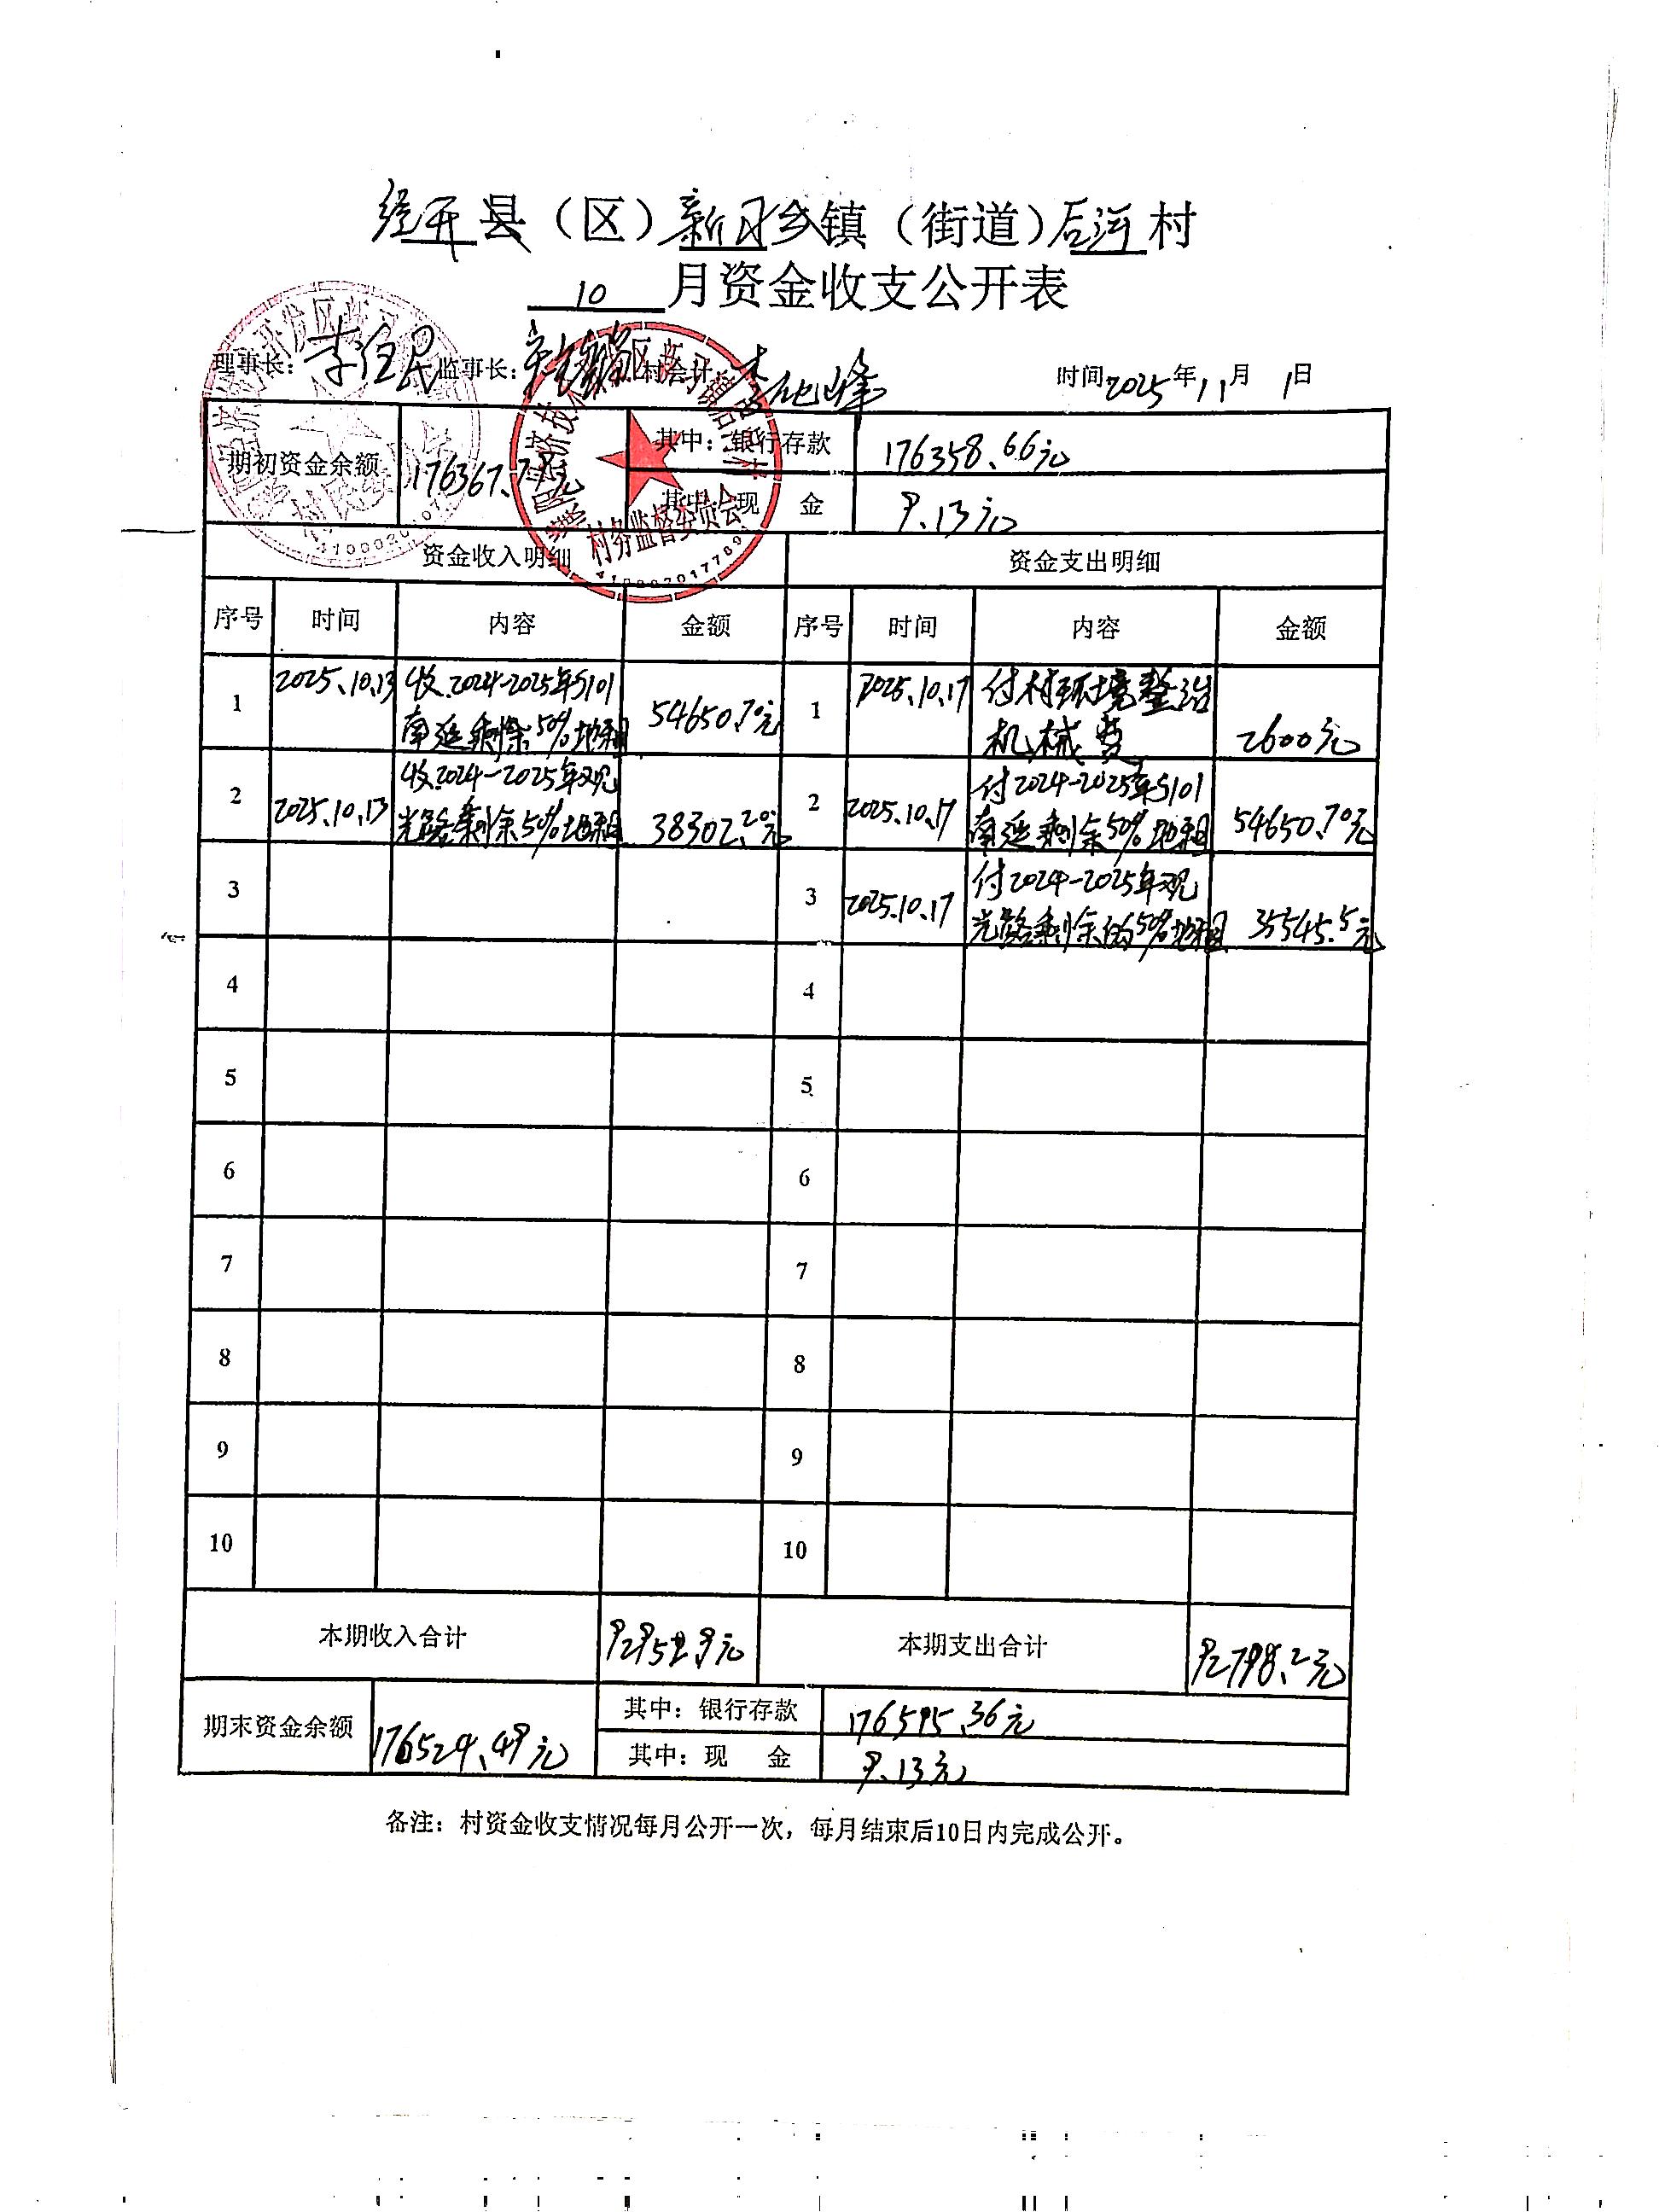 经开县（区）新习乡镇（街道）后河村
10 月资金收支公开表
理事长：李全民 监事长： 村会计： 时间2025年11月1日
期初资金余额 176367.79元 其中：银行存款 176358.66元
其中：现 金 9.13元
资金收入明细 资金支出明细
序号 时间 内容 金额 序号 时间 内容 金额
1 2025.10.13 收2024-2025年S101南延剩余50%地租 54650.70元 1 2025.10.17 付村环境整治机械费 2600元
2 2025.10.13 收2024-2025年观光路剩余50%地租 38302.20元 2 2025.10.17 付2024-2025年S101南延剩余50%地租 54650.70元
3 3 2025.10.17 付2024-2025年观光路剩余的50%地租 35545.5元
4 4
5 5
6 6
7 7
8 8
9 9
10 10
本期收入合计 92952.9元 本期支出合计 92798.2元
期末资金余额 176524.49元 其中：银行存款 176515.36元
其中：现 金 9.13元
备注：村资金收支情况每月公开一次，每月结束后10日内完成公开。
村务监督委员会